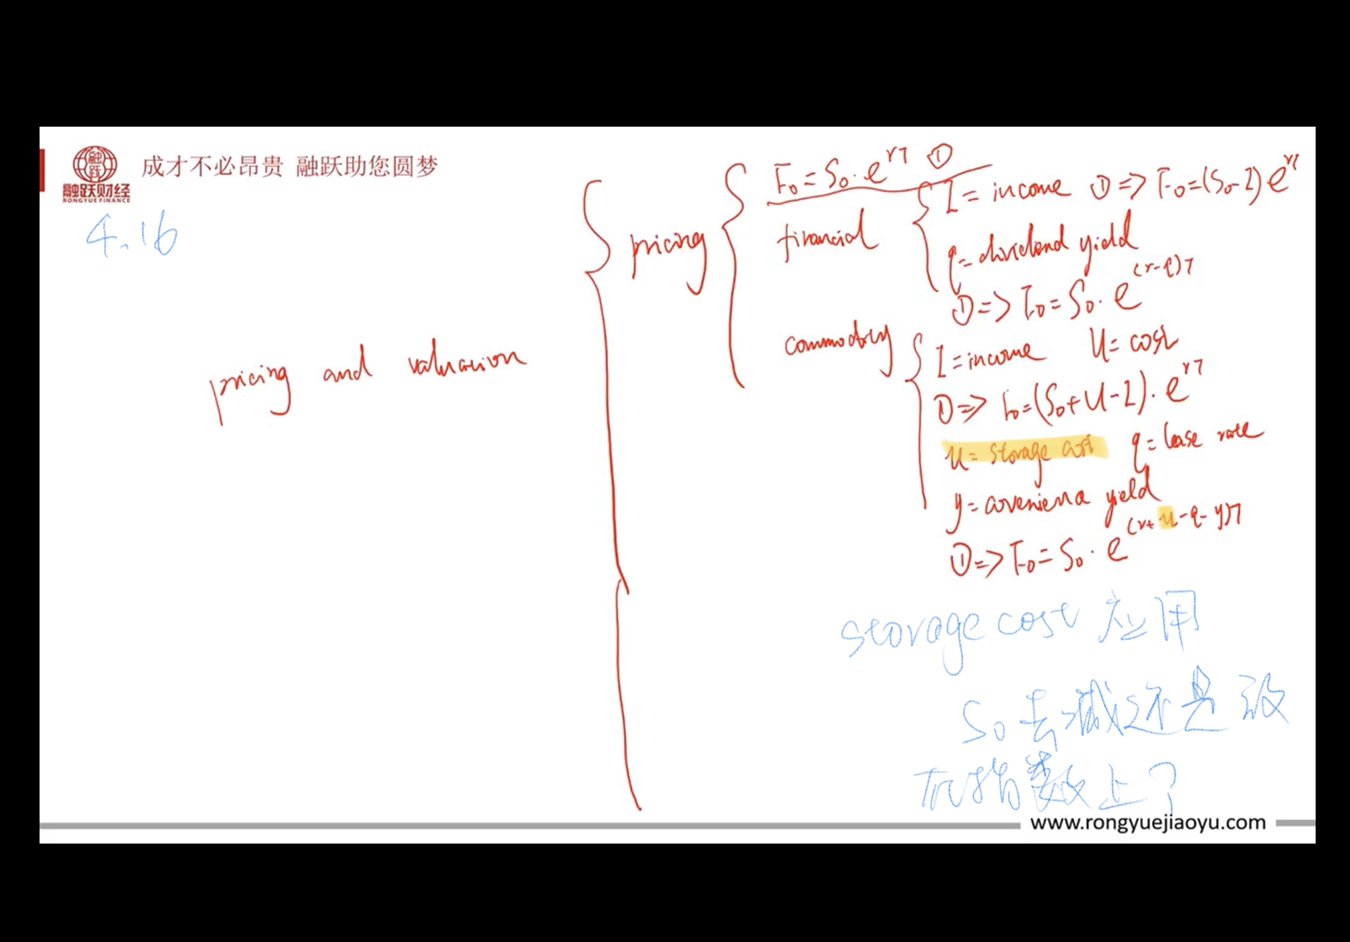 成才不必昂贵 融跃助您圆梦
融跃财经
RONGYUE FINANCE
4.16
pricing and valuation
pricing
F₀ = S₀·e^{rT} ①
financial
I = income ① => F₀=(S₀-I)e^{rT}
q = dividend yield
① => F₀ = S₀·e^{(r-q)T}
commodity
I = income U = cost
① => F₀=(S₀+U-I)·e^{rT}
u = storage cost q = lease rate
y = convenience yield
① => F₀ = S₀·e^{(r+u-q-y)T}
storage cost 应用
S₀去减还是放
在指数上?
www.rongyuejiaoyu.com